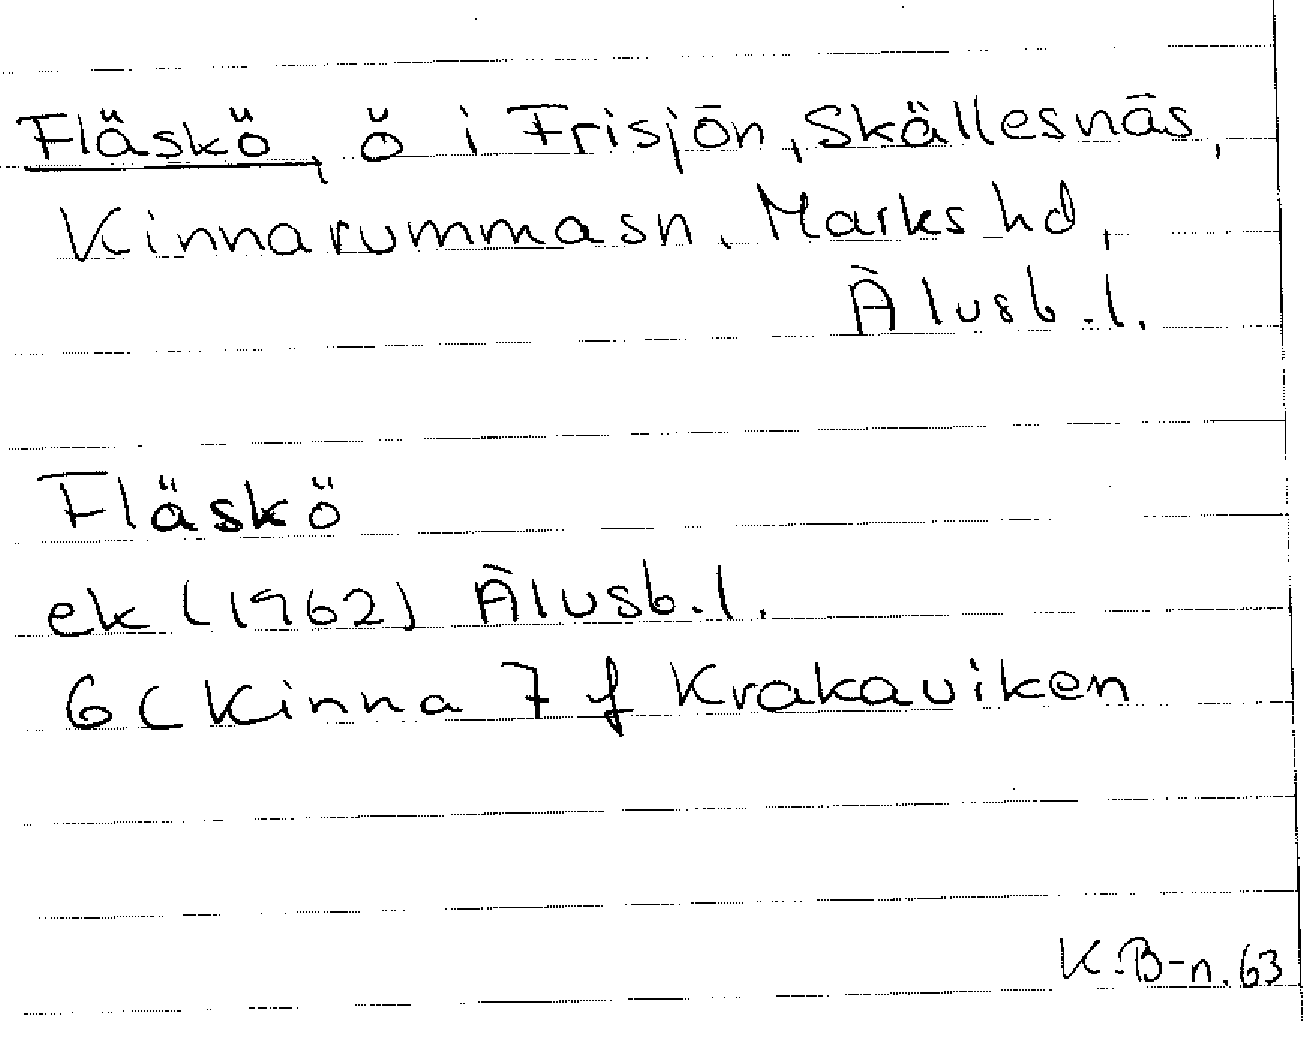 Fläskö, ö i Frisjön, Skällesnäs,
Kinnarummasn. Marks hd,
Älvsb.l.
Fläskö
ek (1962) Älvsb.l.
6 C Kinna 7 f Krakaviken
K.B-n. 63